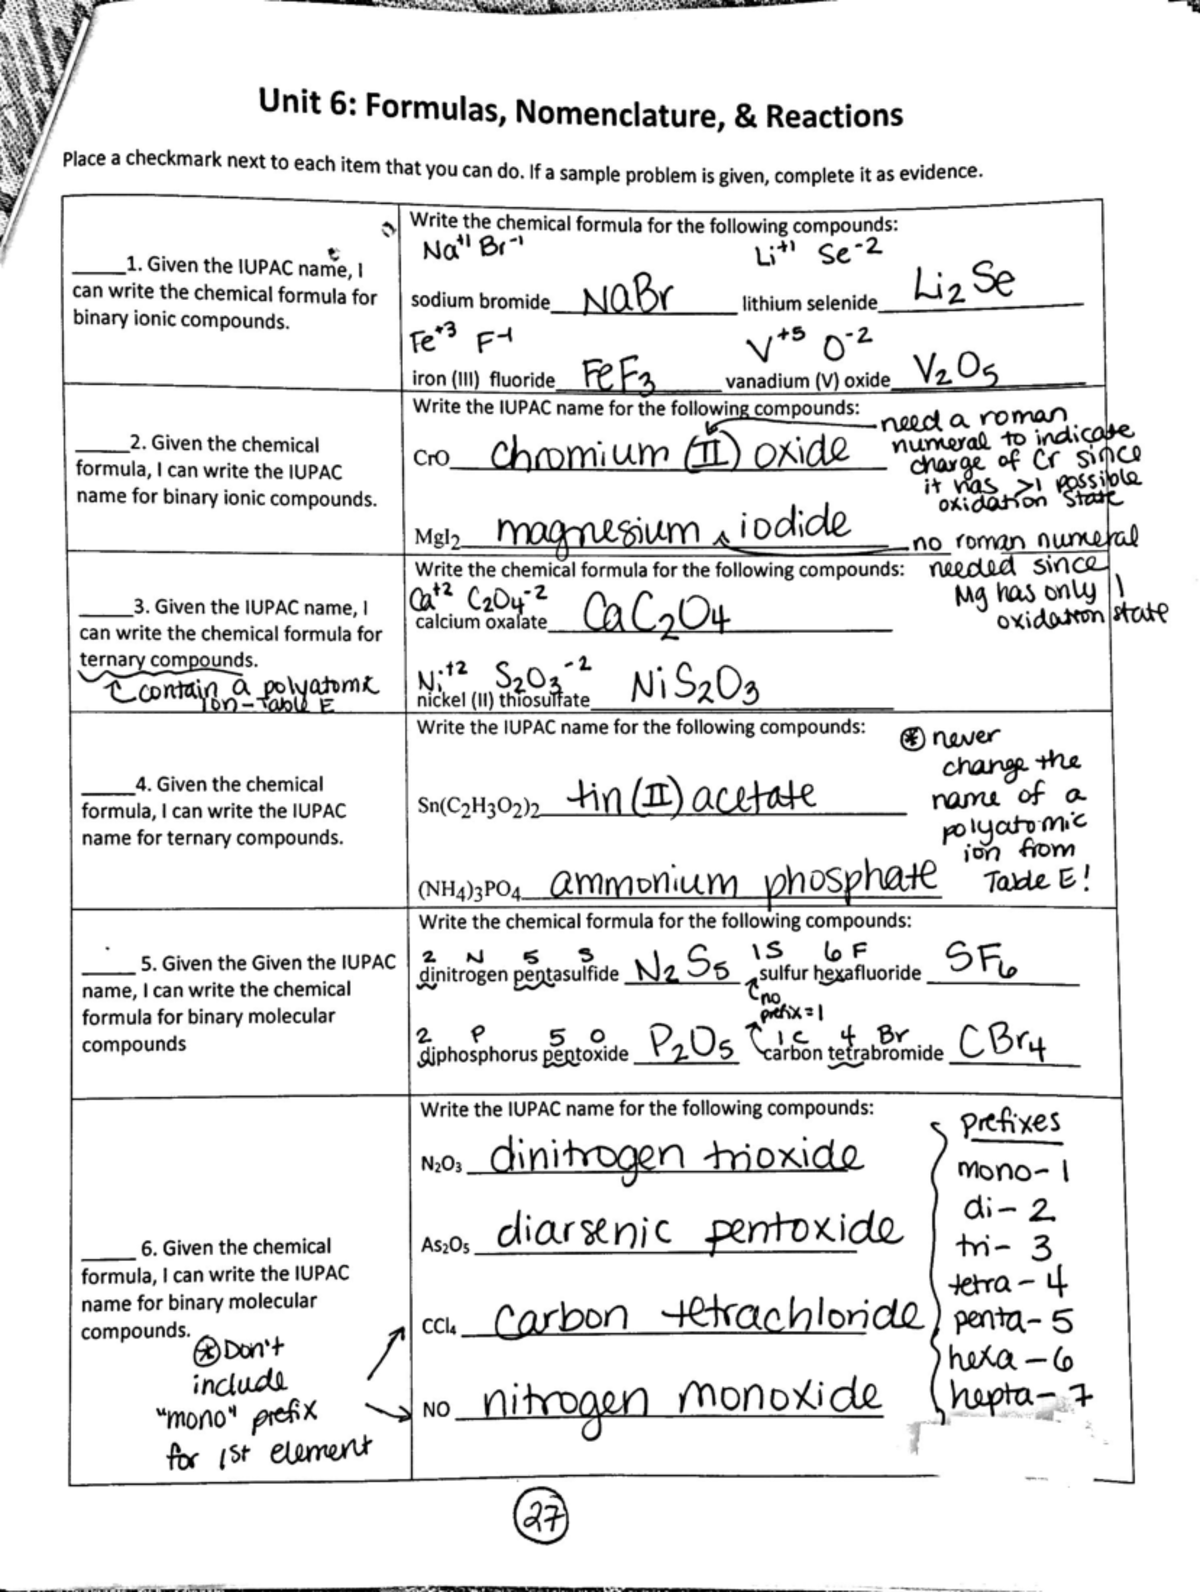 Unit 6: Formulas, Nomenclature, & Reactions
Place a checkmark next to each item that you can do. If a sample problem is given, complete it as evidence.
_____1. Given the IUPAC name, I
can write the chemical formula for
binary ionic compounds.
Write the chemical formula for the following compounds:
Na⁺¹ Br⁻¹ Li⁺¹ Se⁻²
sodium bromide NaBr lithium selenide Li₂Se
Fe⁺³ F⁻¹ V⁺⁵ O⁻²
iron (III) fluoride FeF₃ vanadium (V) oxide V₂O₅
_____2. Given the chemical
formula, I can write the IUPAC
name for binary ionic compounds.
Write the IUPAC name for the following compounds:
CrO chromium (II) oxide
MgI₂ magnesium iodide
need a roman
numeral to indicate
charge of Cr since
it has >1 possible
oxidation state
no roman numeral
needed since
Mg has only 1
oxidation state
_____3. Given the IUPAC name, I
can write the chemical formula for
ternary compounds.
↑ contain a polyatomic
ion - Table E
Write the chemical formula for the following compounds:
Ca⁺² C₂O₄⁻²
calcium oxalate CaC₂O₄
Ni⁺² S₂O₃⁻²
nickel (II) thiosulfate NiS₂O₃
_____4. Given the chemical
formula, I can write the IUPAC
name for ternary compounds.
Write the IUPAC name for the following compounds:
Sn(C₂H₃O₂)₂ tin (II) acetate
(NH₄)₃PO₄ ammonium phosphate
⊛ never
change the
name of a
polyatomic
ion from
Table E!
_____ 5. Given the Given the IUPAC
name, I can write the chemical
formula for binary molecular
compounds
Write the chemical formula for the following compounds:
2 N 5 S 1S 6 F
dinitrogen pentasulfide N₂S₅ sulfur hexafluoride SF₆
↑ no
prefix = 1
2 P 5 O 1 C 4 Br
diphosphorus pentoxide P₂O₅ carbon tetrabromide CBr₄
_____ 6. Given the chemical
formula, I can write the IUPAC
name for binary molecular
compounds.
⊛ Don't
include
"mono" prefix
for 1st element
Write the IUPAC name for the following compounds:
N₂O₃ dinitrogen trioxide
As₂O₅ diarsenic pentoxide
CCl₄ carbon tetrachloride
NO nitrogen monoxide
prefixes
mono- 1
di- 2
tri- 3
tetra- 4
penta- 5
hexa- 6
hepta- 7
27